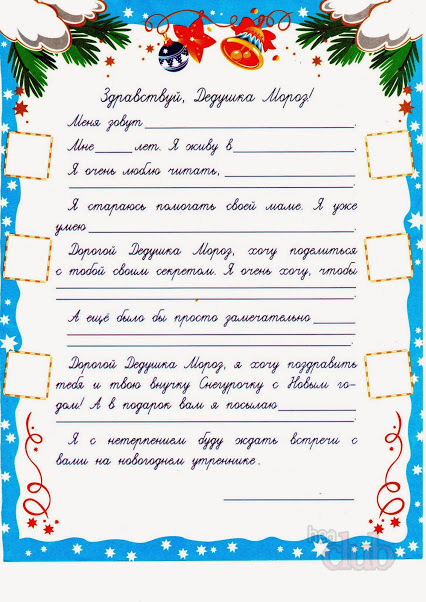 Здравствуй, Дедушка Мороз!
Меня зовут
Мне лет. Я живу в
Я очень люблю читать,
Я стараюсь помогать своей маме. Я уже
умею
Дорогой Дедушка Мороз, хочу поделиться
с тобой своим секретом. Я очень хочу, чтобы
А ещё было бы просто замечательно
Дорогой Дедушка Мороз, я хочу поздравить
тебя и твою внучку Снегурочку с Новым го-
дом! А в подарок вам я посылаю
Я с нетерпением буду ждать встречи с
вами на новогоднем утреннике.
club